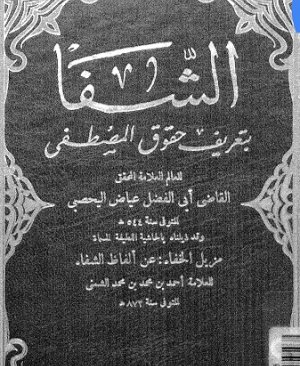 الشفا
بتعريف حقوق المصطفى
للعالم العلامة المحقق
القاضى أبى الفضل عياض اليحصبى
المتوفى سنة ٥٤٤ هـ
وقد ذيلناه بالحاشية اللطيفة المسماة
مزيل الخفاء: عن ألفاظ الشفاء
للعلامة أحمد بن محمد بن محمد الشمنى
المتوفى سنة ٨٧٣ هـ